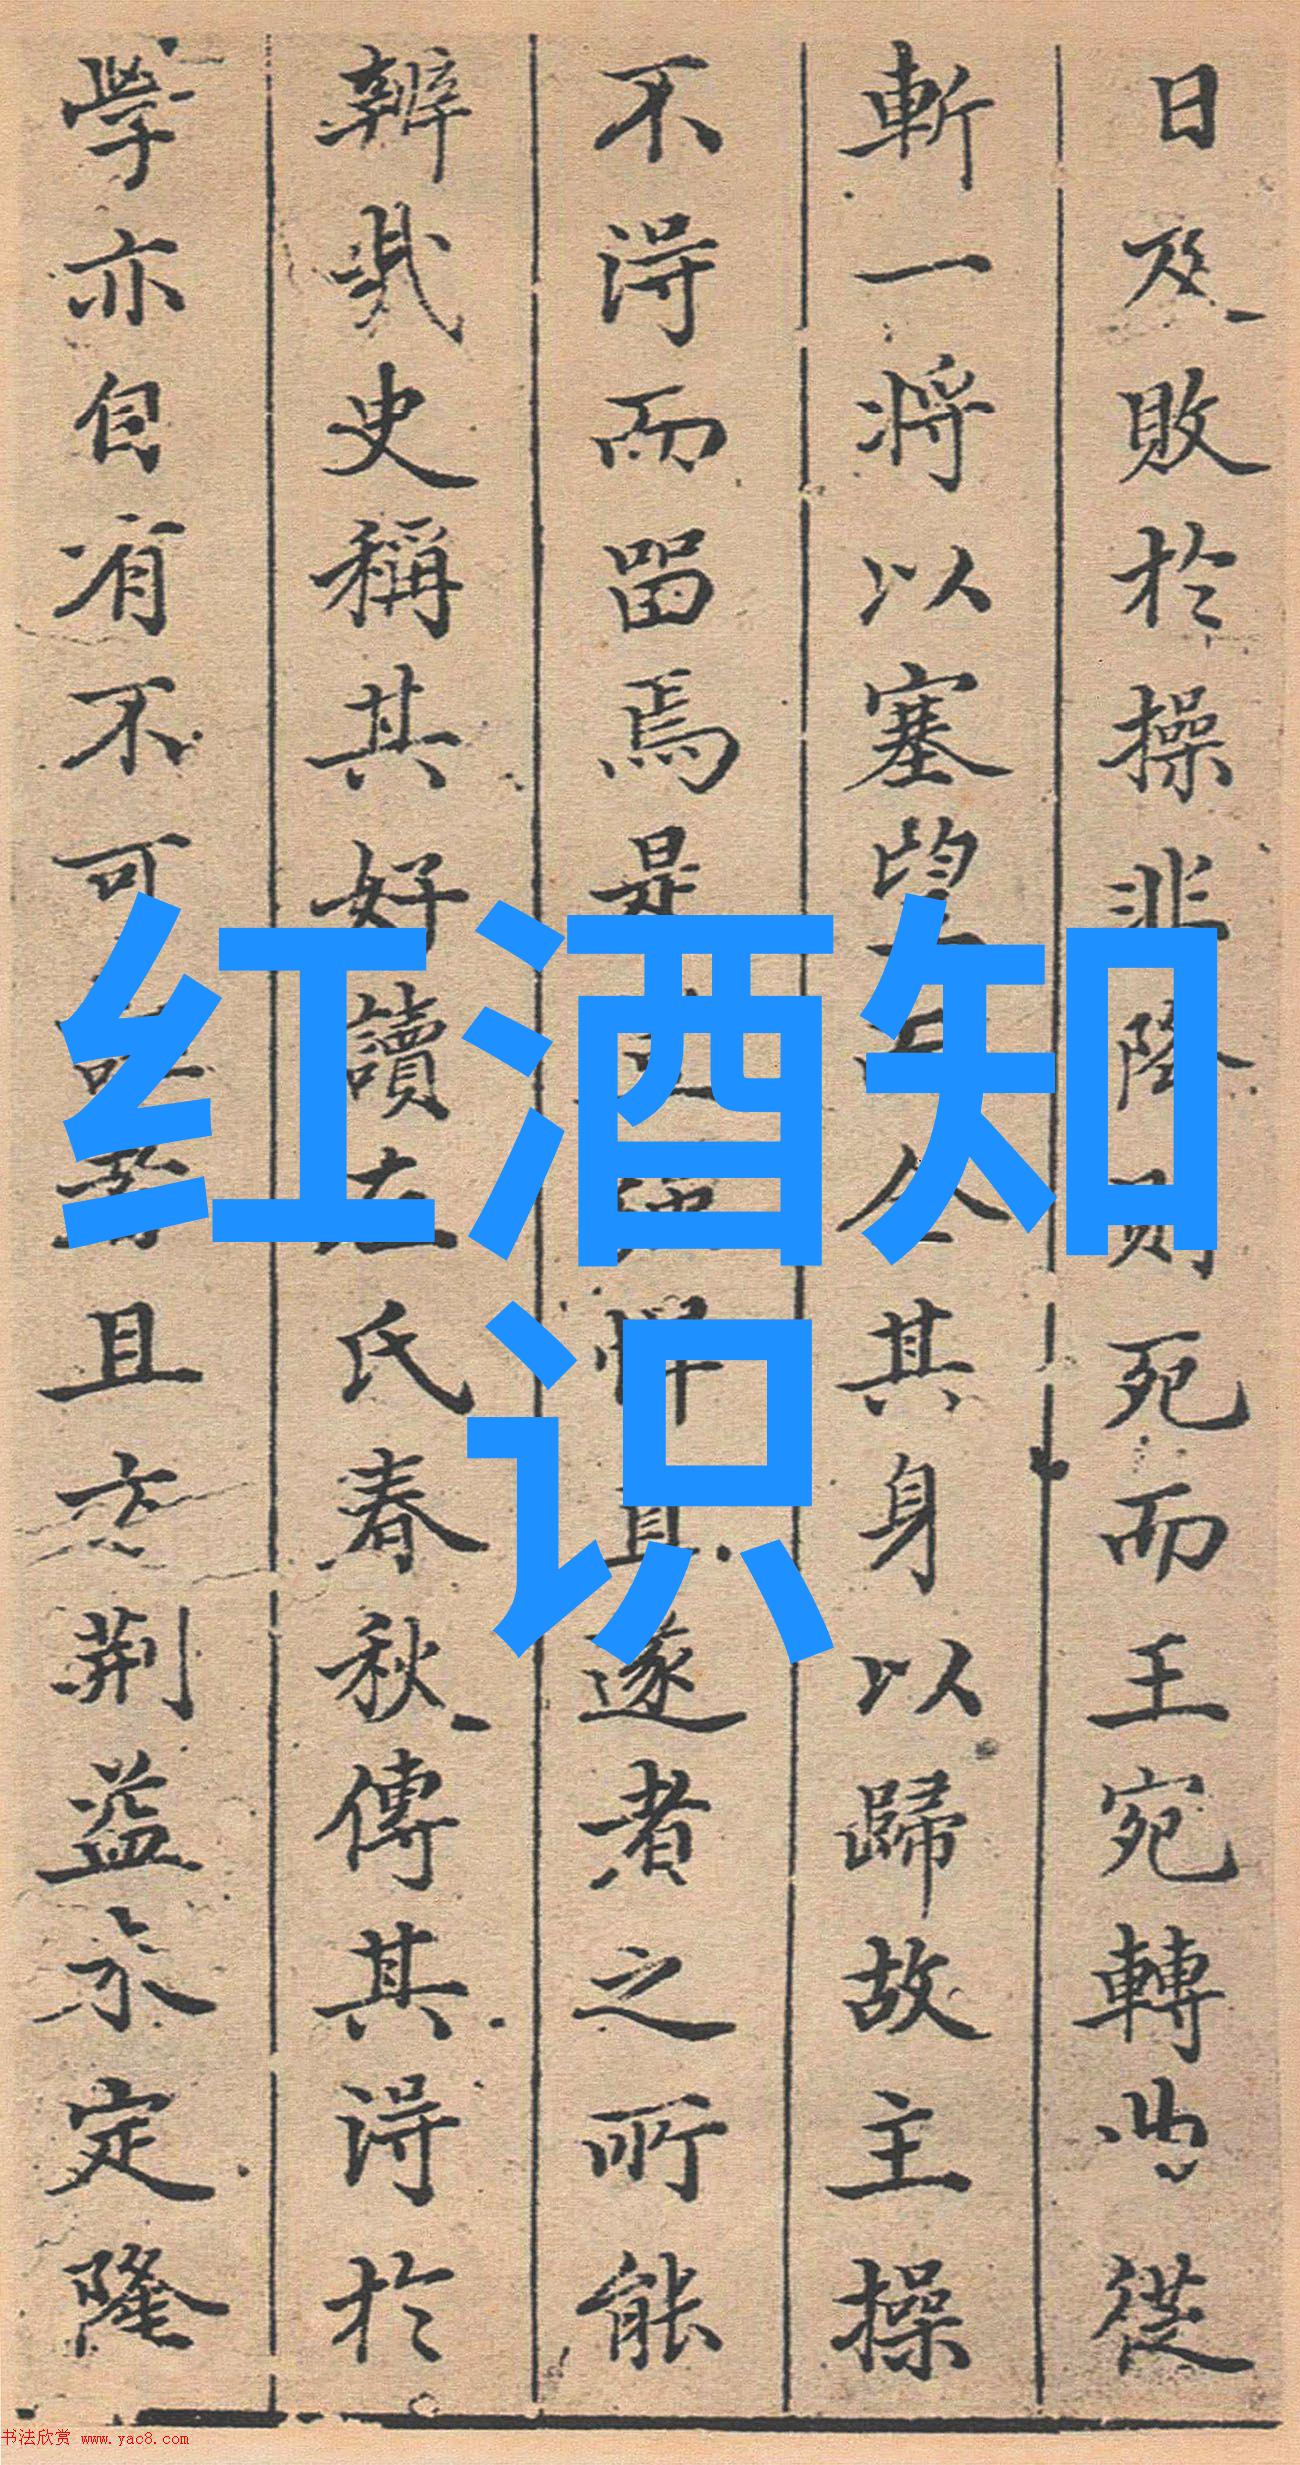 日及敗於操非降則死而王宛轉曲從
斬一將以塞望全其身以歸故主操
不得而留焉是直遂者之所能
辨哉史稱其好讀左氏春秋傳其得於
學亦自有不可誣者且方荊益未定隆
红酒知
识
书法欣赏 www.yac8.com